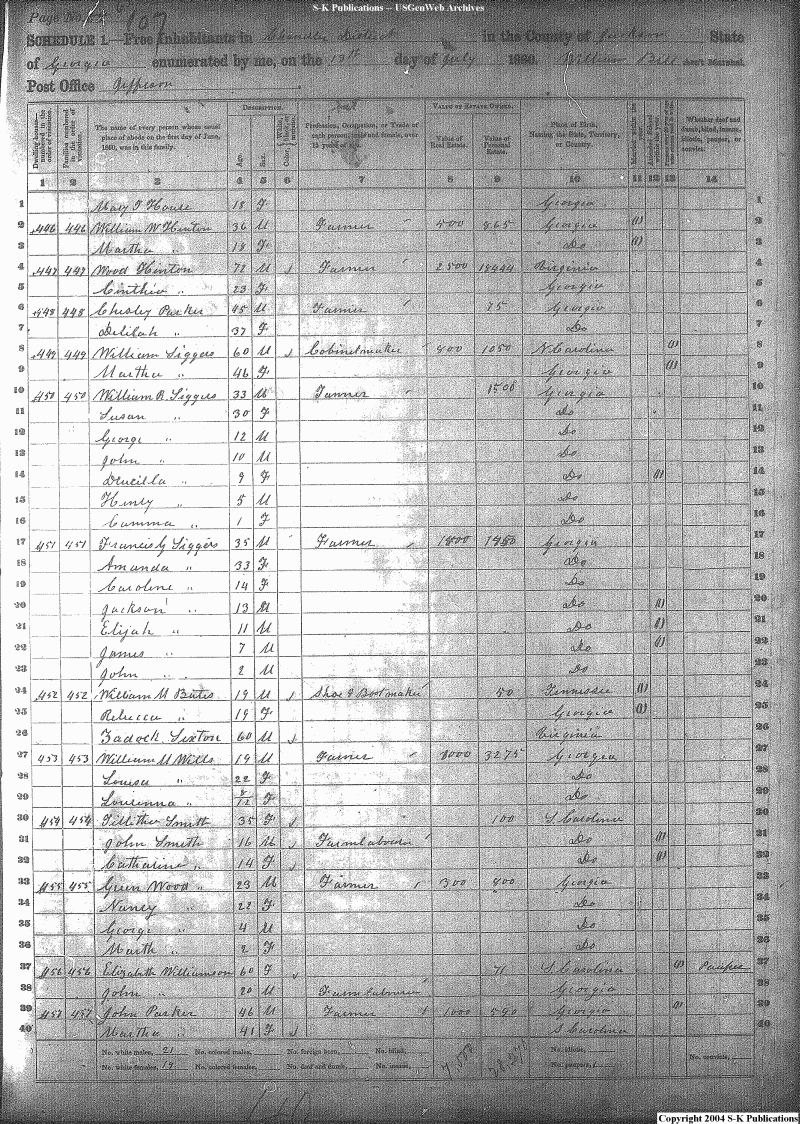 S-K Publications -- USGenWeb Archives
Page No. 107
SCHEDULE 1.—Free Inhabitants in Chandler District in the County of Jackson State
of Georgia enumerated by me, on the 13th day of July 1860. William Bell Ass't Marshal.
Post Office Jefferson
Dwelling-houses—numbered in the order of visitation.
Families numbered in the order of visitation.
The name of every person whose usual place of abode on the first day of June, 1860, was in this family.
DESCRIPTION.
Age.
Sex.
Color,
Profession, Occupation, or Trade of each person, male and female, over 15 years of age.
VALUE OF ESTATE OWNED.
Value of Real Estate.
Value of Personal Estate.
Place of Birth, Naming the State, Territory, or Country.
Married within the year.
Whether deaf and dumb, blind, insane, idiotic, pauper, or convict.
1 2 3 4 5 6 7 8 9 10 11 12 13 14
1 Mary J House 18 F Georgia 1
2 446 446 William W Hinton 36 M Farmer 500 865 Georgia (1) 2
3 Martha " 18 F Do (1) 3
4 447 447 Wood Hinton 72 M Farmer 2500 18444 Virginia 4
5 Cinthia " 23 F Georgia 5
6 448 448 Chesley Parker 45 M Farmer 75 Georgia 6
7 Delilah " 37 F Do 7
8 449 449 William Siggers 60 M Cobinetmaker 800 1050 N Carolina (1) 8
9 Martha " 46 F Georgia (1) 9
10 450 450 William R Siggers 33 M Farmer 1500 Georgia 10
11 Susan " 30 F Do 11
12 George " 12 M Do 12
13 John " 10 M Do 13
14 Drucilla " 9 F Do (1) 14
15 Henry " 5 M Do 15
16 " 1 F Do 16
17 451 451 Francis Siggers 35 M Farmer 1800 Georgia 17
18 Amanda " 33 F Do 18
19 Caroline " 14 F Do 19
20 Jackson " 13 M Do (1) 20
21 Elijah " 11 M Do (1) 21
22 James " 7 M Do (1) 22
23 John " 2 M Do 23
24 452 452 William M 19 M Shoe & Bootmaker 50 Tennessee (1) 24
25 Rebecca " 19 F Georgia (1) 25
26 Zadock Sexton 60 M Virginia 26
27 453 453 William M Wills 19 M Farmer 8000 3275 Georgia 27
28 Louisa " 22 F Do 28
29 Louvenna " 8/12 F Do 29
30 454 454 Tillitha Smith 35 F 100 S Carolina 30
31 John Smith 16 M Farmlabourer Do (1) 31
32 Catharine " 14 F Do (1) 32
33 455 455 Green Wood " 23 M Farmer 300 400 Georgia 33
34 Nancy " 22 F Do 34
35 George " 4 M Do 35
36 Marth " 2 F Do 36
37 456 456 Elizabeth Williamson 60 F 71 S Carolina (1) Pauper 37
38 John " 20 M Farm Labourer Georgia 38
39 457 457 John Parker 46 M Farmer 1000 590 Georgia (1) 39
40 Martha " 41 F S Carolina 40
No. white males, 21 No. colored males, No. foreign born, No. blind, No. idiotic, No. convicts,
No. white females, 19 No. colored females, No. deaf and dumb, No. insane, No. paupers, 1
Copyright 2004 S-K Publications